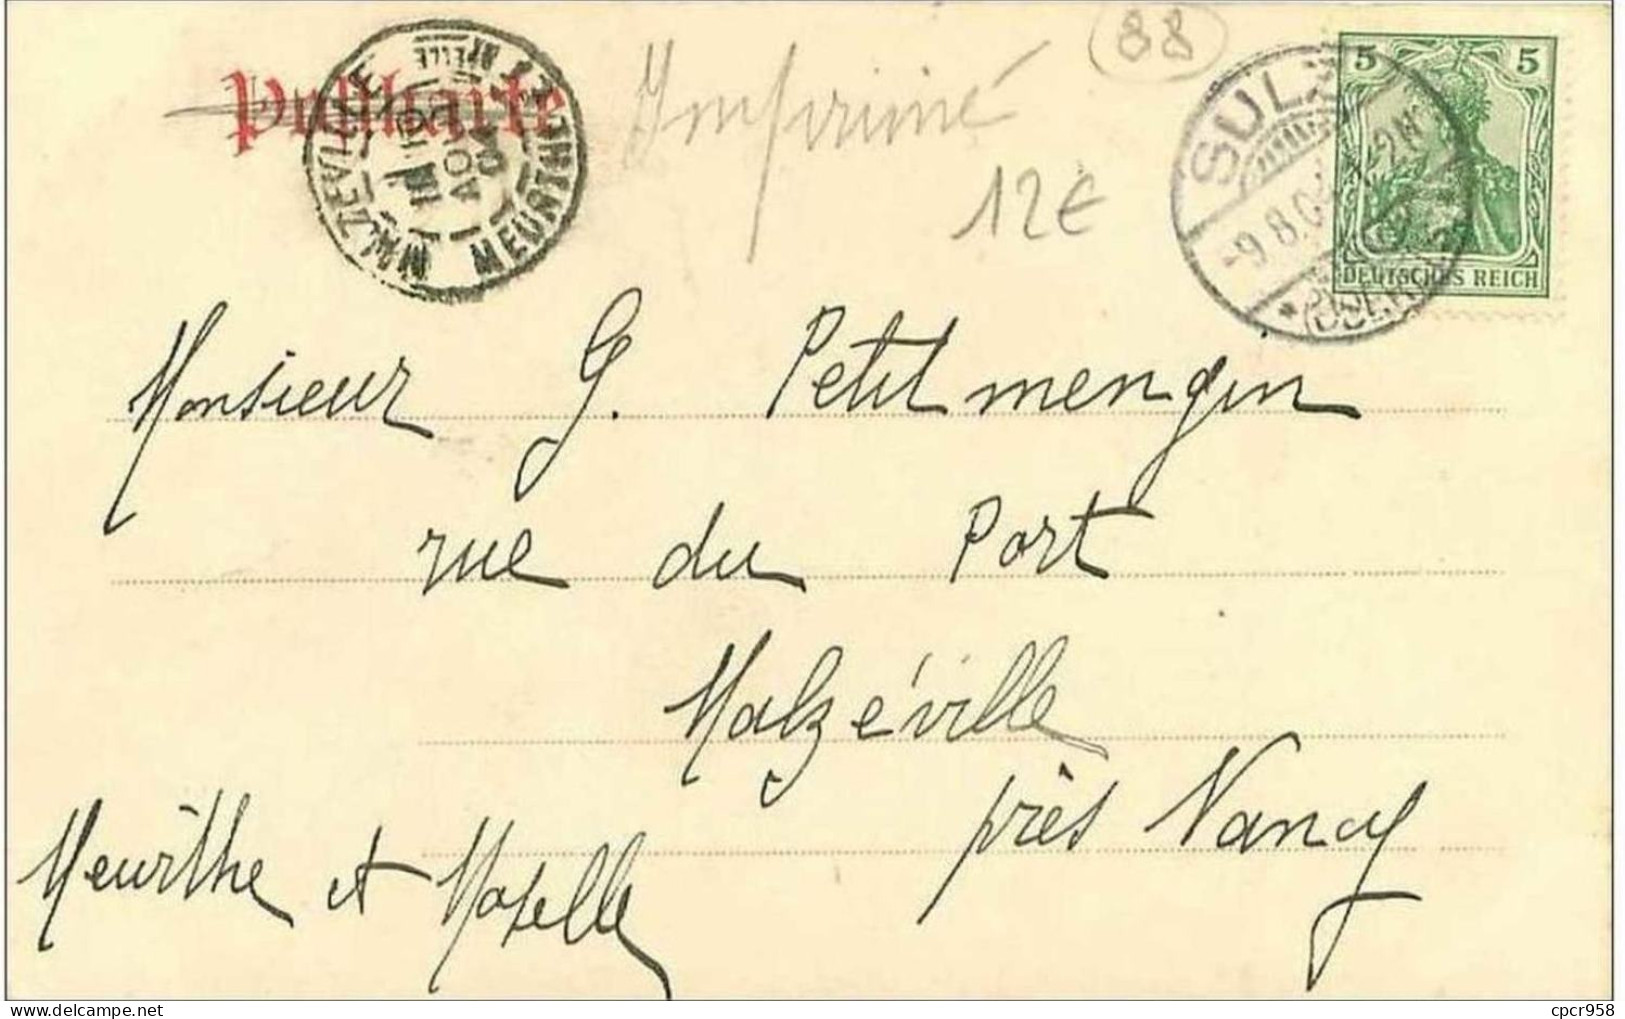 Postkarte
Imprimé
88
12€
MALZEVILLE
MEURTHE ET MELLE
10
AOUT
04
SULZ
-9.8.04
5 5
DEUTSCHES REICH
Monsieur G. Petitmengin
rue du Port
Malzéville
près Nancy
Meurthe et Moselle
cpcr958